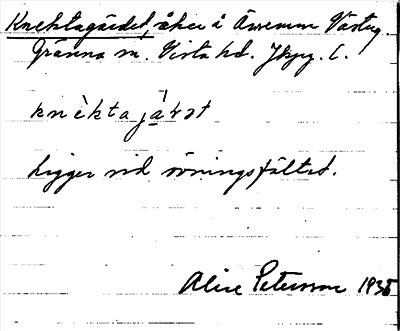 Knektagärdet, åker å Äverum Västerg.
Gränna sn. Vista hd. Jkpg. l.
knèktajá̤rət
Ligger vid övningsfältet.
Alice Petersson 1935